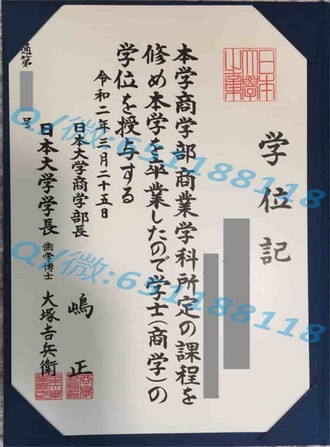 日本大學之章
学位記
本学商学部商業学科所定の課程を
修め本学を卒業したので学士(商学)の
学位を授与する
令和二年三月二十五日
日本大学商学部長 嶋 正
日本大学学長 歯学博士 大塚吉兵衛
第 号
Q/微:651188118
Q/微:651188118